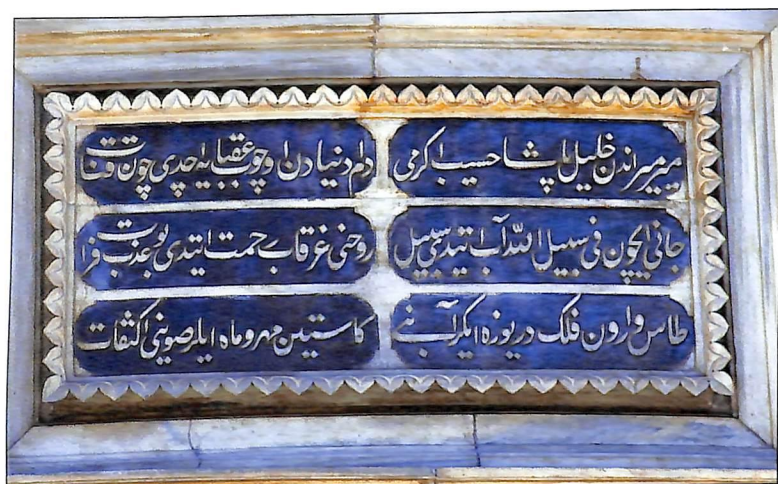 میر میراندن خلیل پاشا حسیب اکرمی دام دنیادن اوچوب عقبایه آچدی چون قنات
جانی ایچون فی سبیل الله آب ایتدی سبیل روحنی غرقاب رحمت ایتدی بو عذب فرات
طاس وارون فلک دریوزه ایلر آبنی کاستین مهر و ماه ایلر صوینی اکتفات